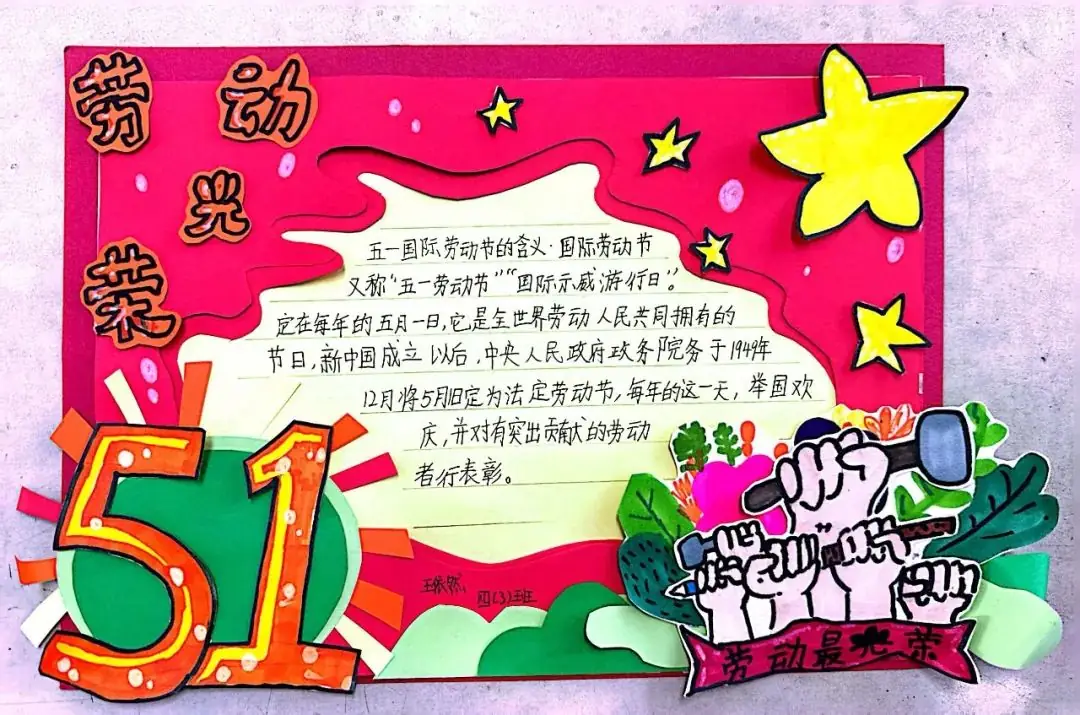 劳动
光
荣
五一国际劳动节的含义·国际劳动节
又称"五一劳动节""国际示威游行日"。
定在每年的五月一日,它是全世界劳动人民共同拥有的
节日,新中国成立以后,中央人民政府政务院务于1949年
12月将5月1日定为法定劳动节,每年的这一天,举国欢
庆,并对有突出贡献的劳动
者行表彰。
51
王依然
四(3)班
劳动最光荣